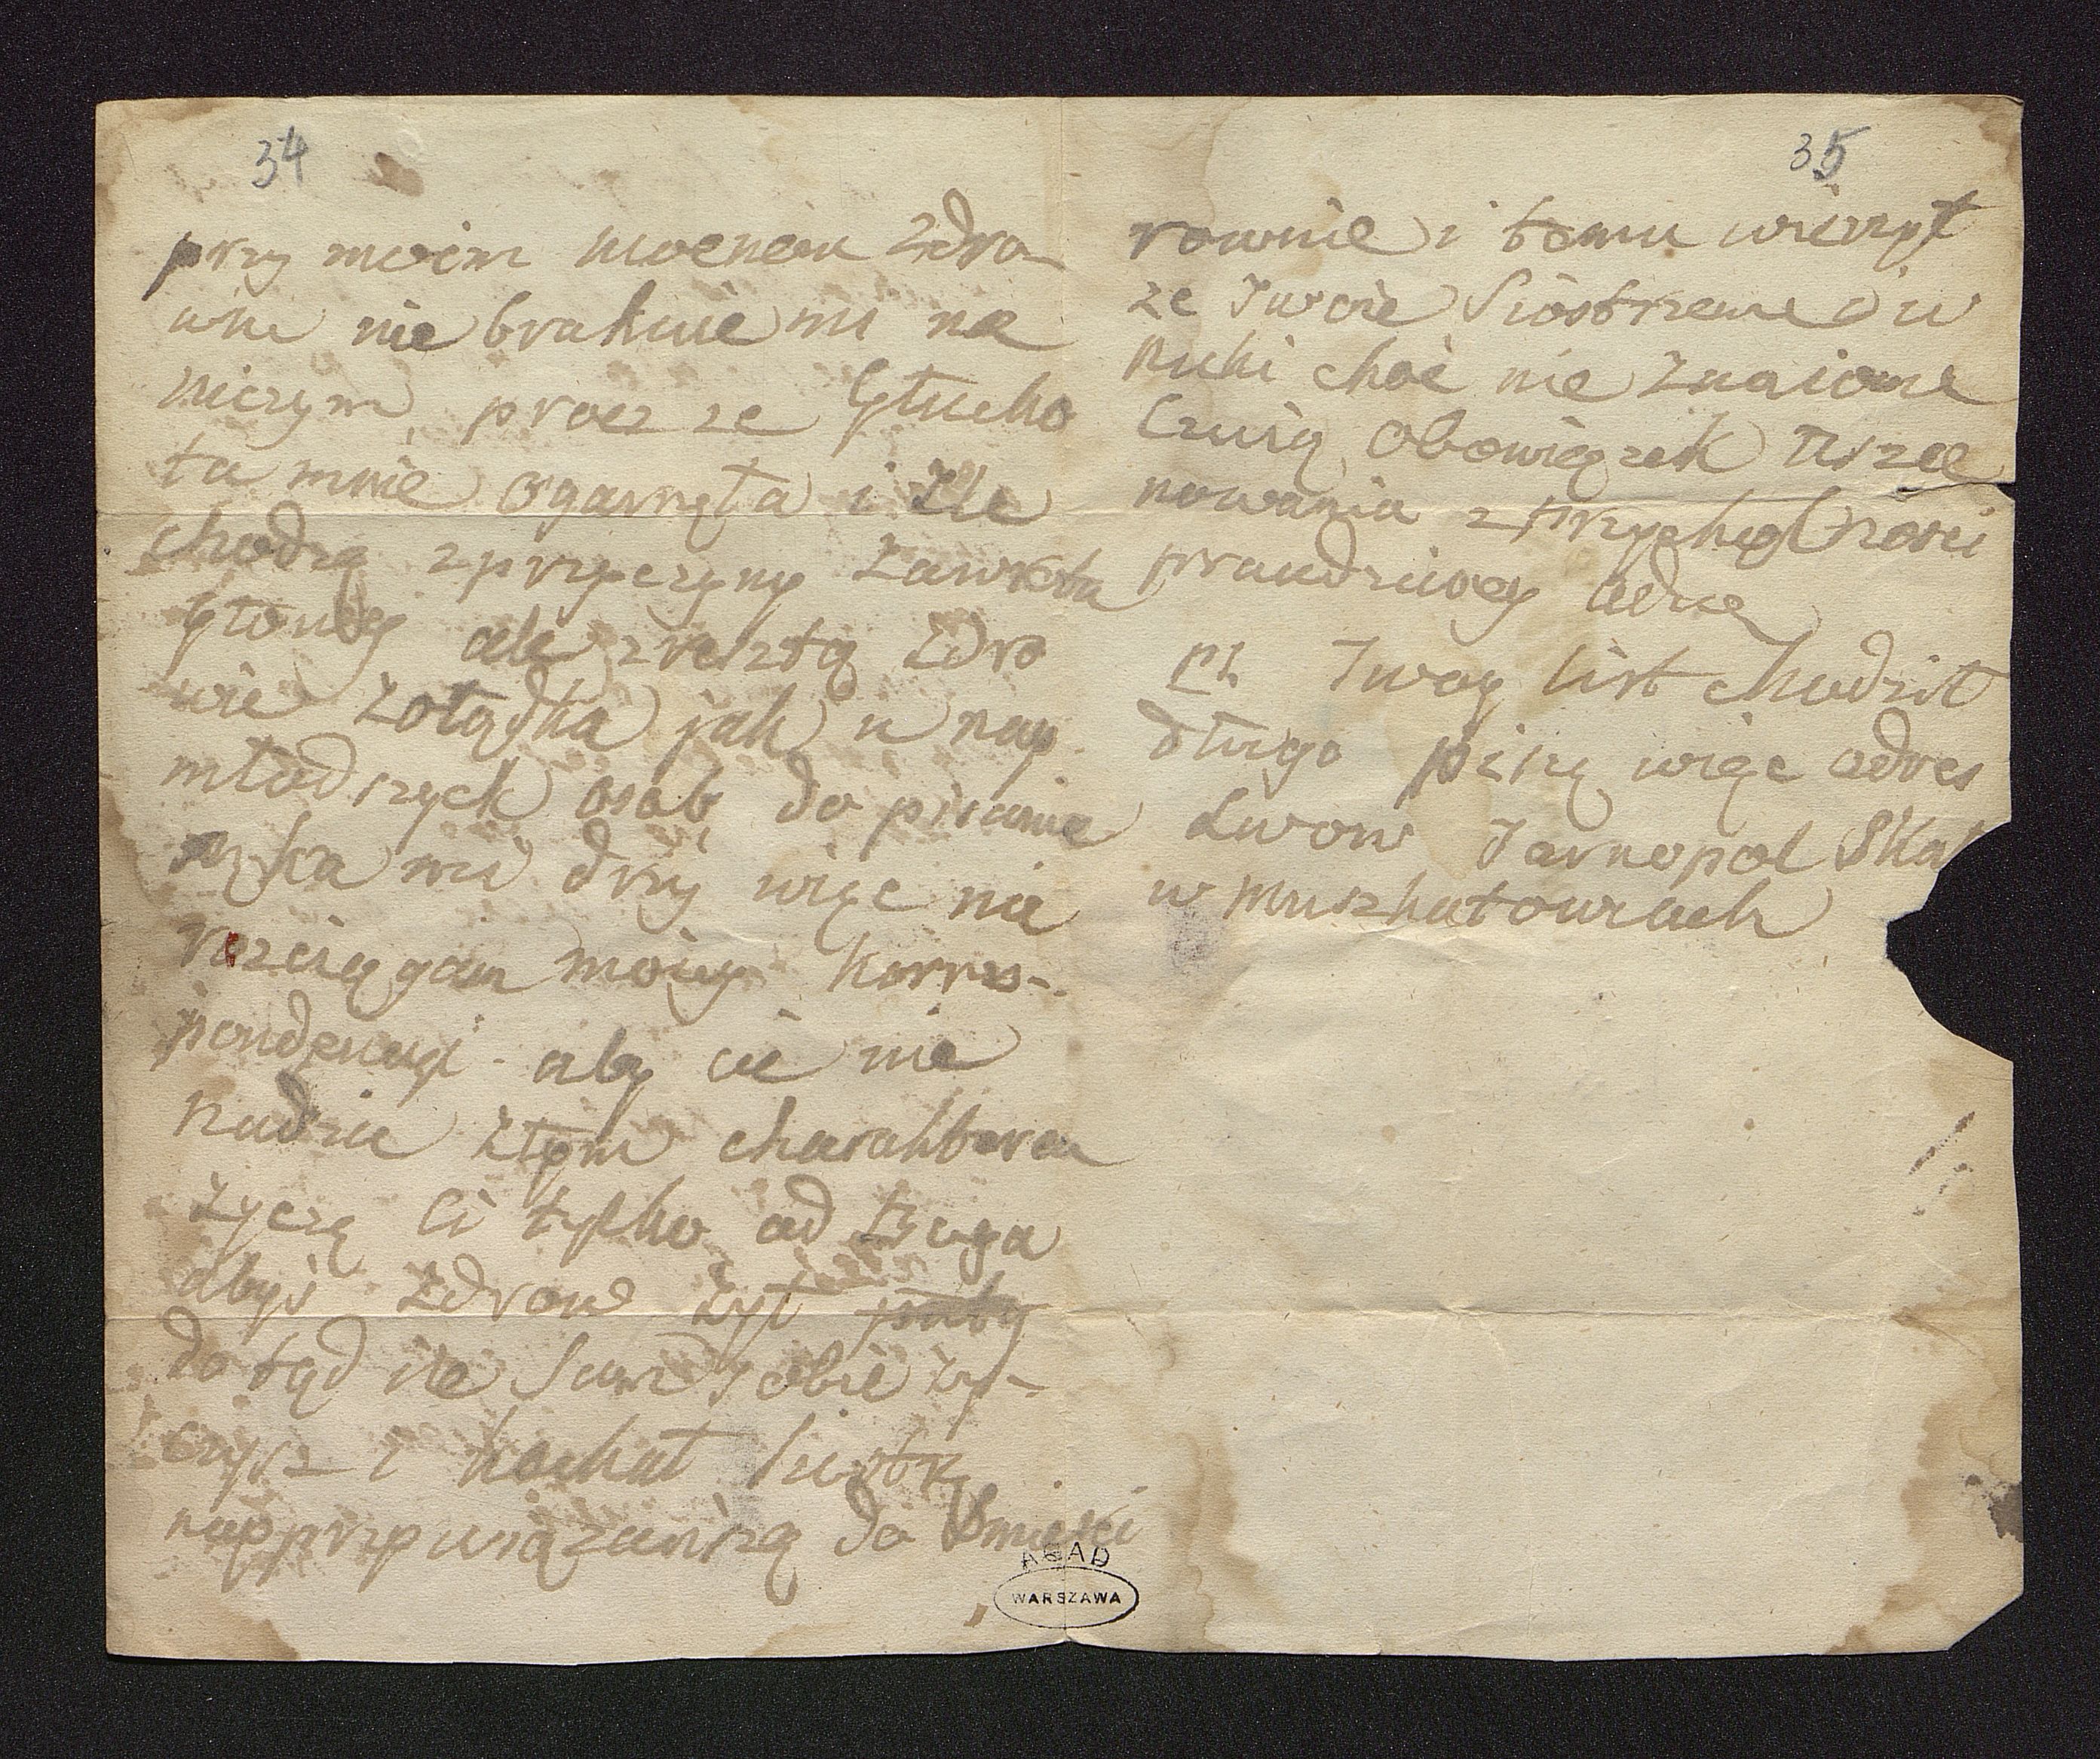 34
przy moim mocnem zdro-
wiu nie brakuie mi na
niczym, procz ze głucho
ta mnie ogarnęła i źle
chodzę z przyczyny zawrotu
głowy ale zresztą zdro
wie zołądka jak u nay
młodszych osob, do pisania
ręka mi drzy więc nie
rozciągam moiey korres-
pondencyi - aby cie nie
nudzic złym charakterem
zyczę ci tylko od boga
abyś zdrow żył puty
do tąd ile sam sobie ży-
czysz i kochał siostrę
nayprzywiązanszą do Smierci
35
rownie i temu wierzył
ze Twoie Siostrzence i w
nuki choć nie znaiome
Czuią obowiązek usza
nowania z przychylności
prawdziwey
ps. Twoy list chodził
długo piszę więc adres
Lwow Tarnopol Skał
w Muszkatowcach
AGAD
WARSZAWA